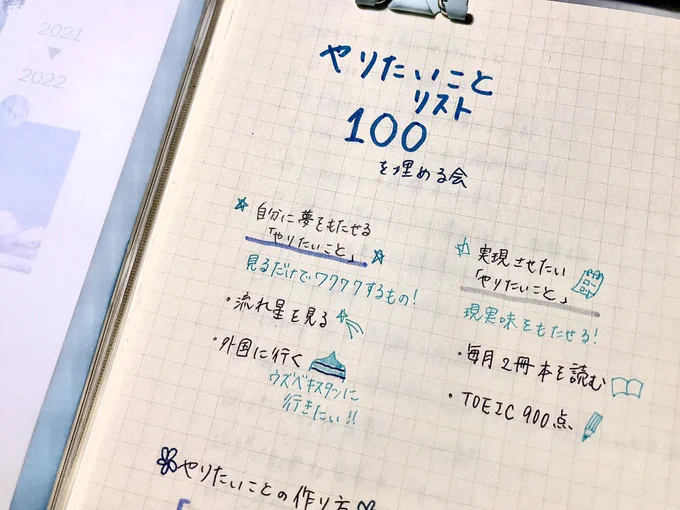 2021
2022
やりたいこと
リスト
100
を埋める会
自分に夢をもたせる
「やりたいこと」
見るだけでワクワクするもの!
・流れ星を見る
・外国に行く
ウズベキスタンに
行きたい!!
実現させたい
「やりたいこと」
現実味をもたせる!
・毎月2冊本を読む
・TOEIC 900点
やりたいことの作り方